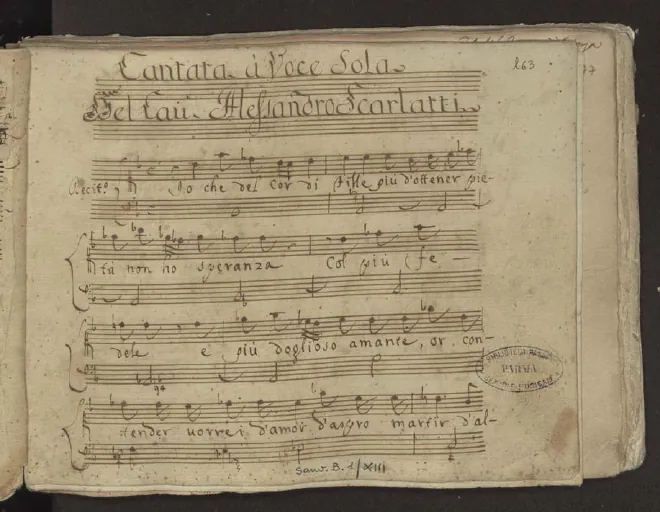 163
Cantata à Voce Sola
Del Cav. Alessandro Scarlatti
Recit.º Io che del Cor di Fille più d'ottener pie-
tà non ho speranza Col più fe-
dele e più doglioso amante, or con-
BIBLIOTECA
PARMA
tender vorrei d'amor d'aspro martir d'al-
Sanv. B. 1/XIII